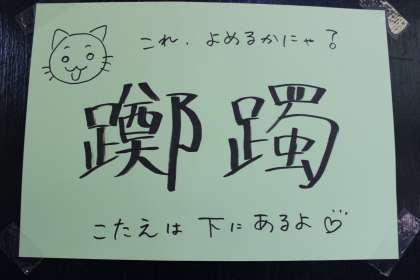 これ、よめるかにゃ？
躑躅
こたえは 下にあるよ♡